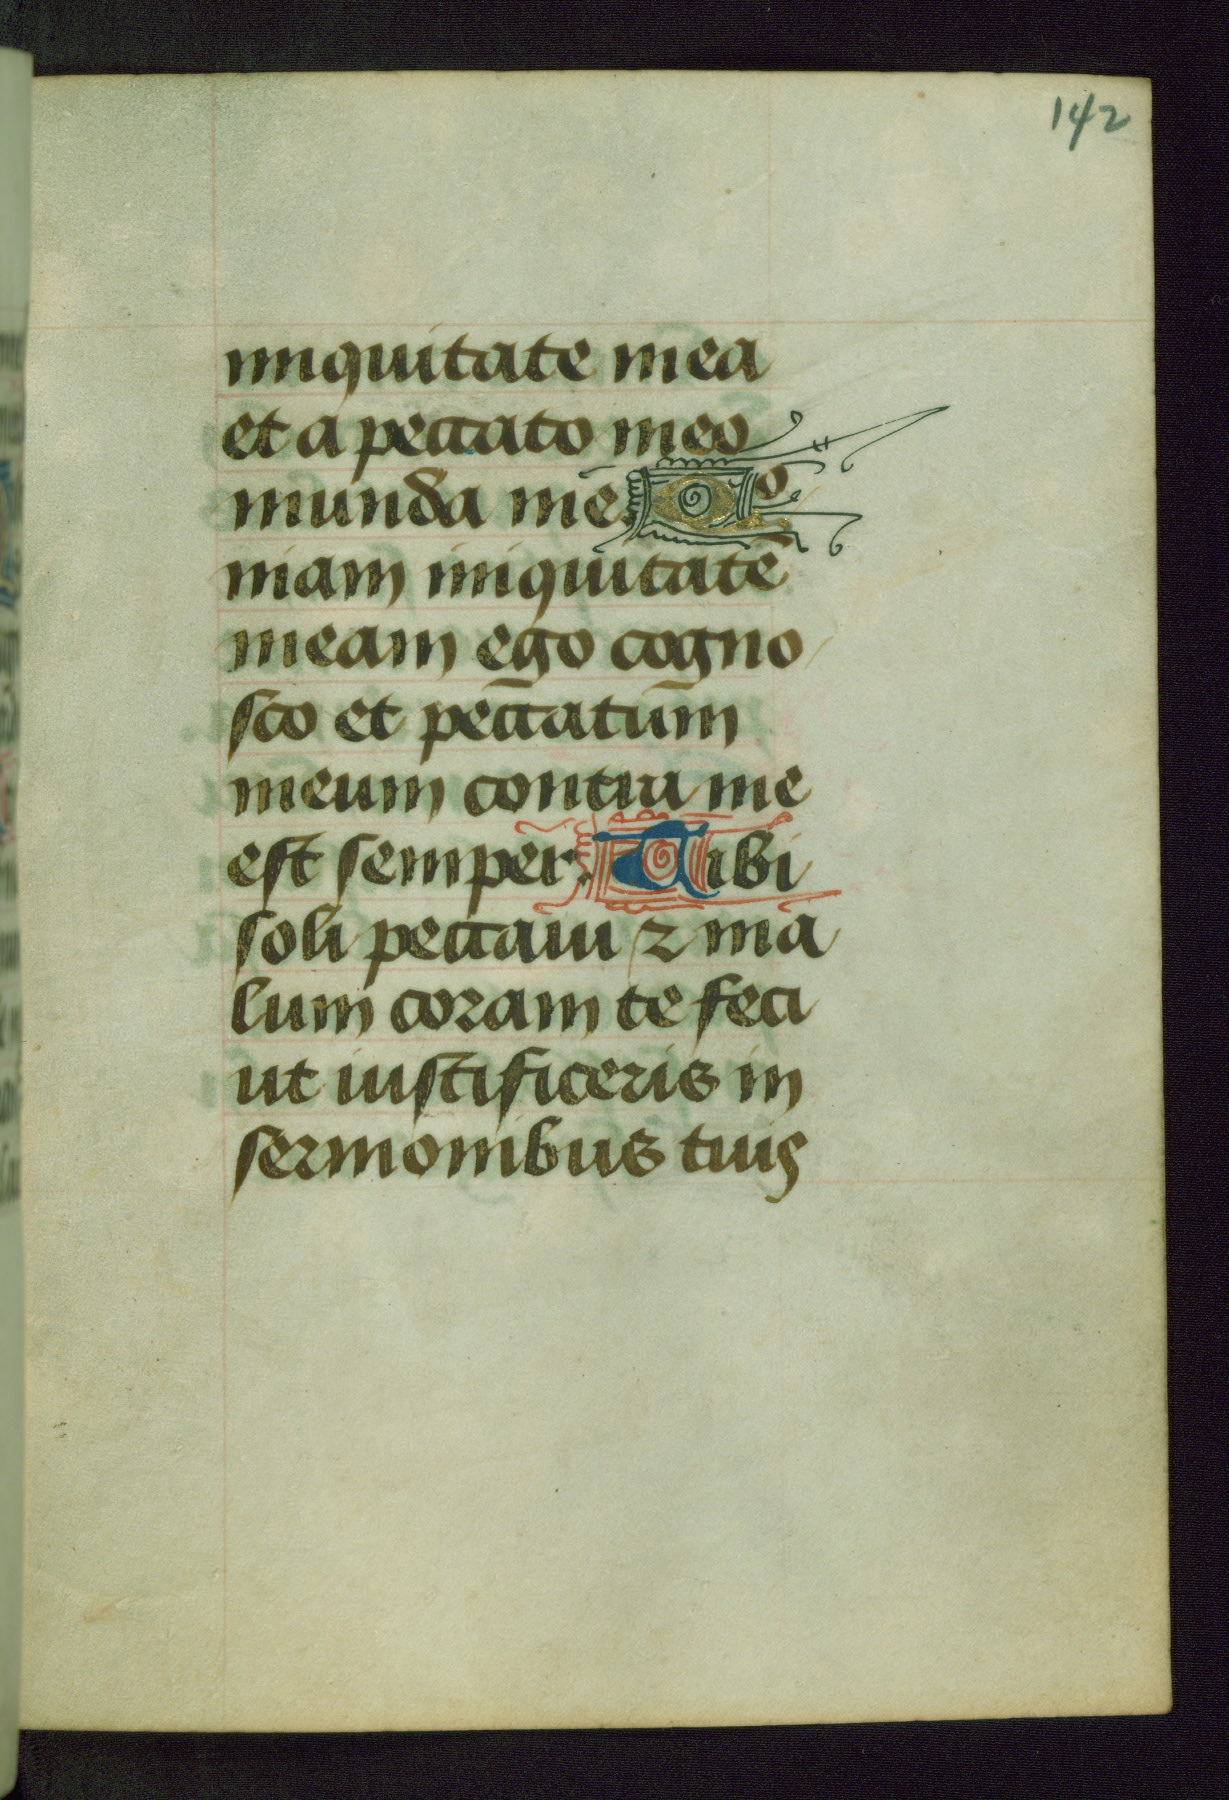 142
iniquitate mea
et a peccato meo
munda me. Quo
niam iniquitatē
meam ego cogno
sco et peccatum
meum contra me
est semper. Tibi
soli peccaui ⁊ ma
lum coram te feci
ut iustificeris in
sermonibus tuis